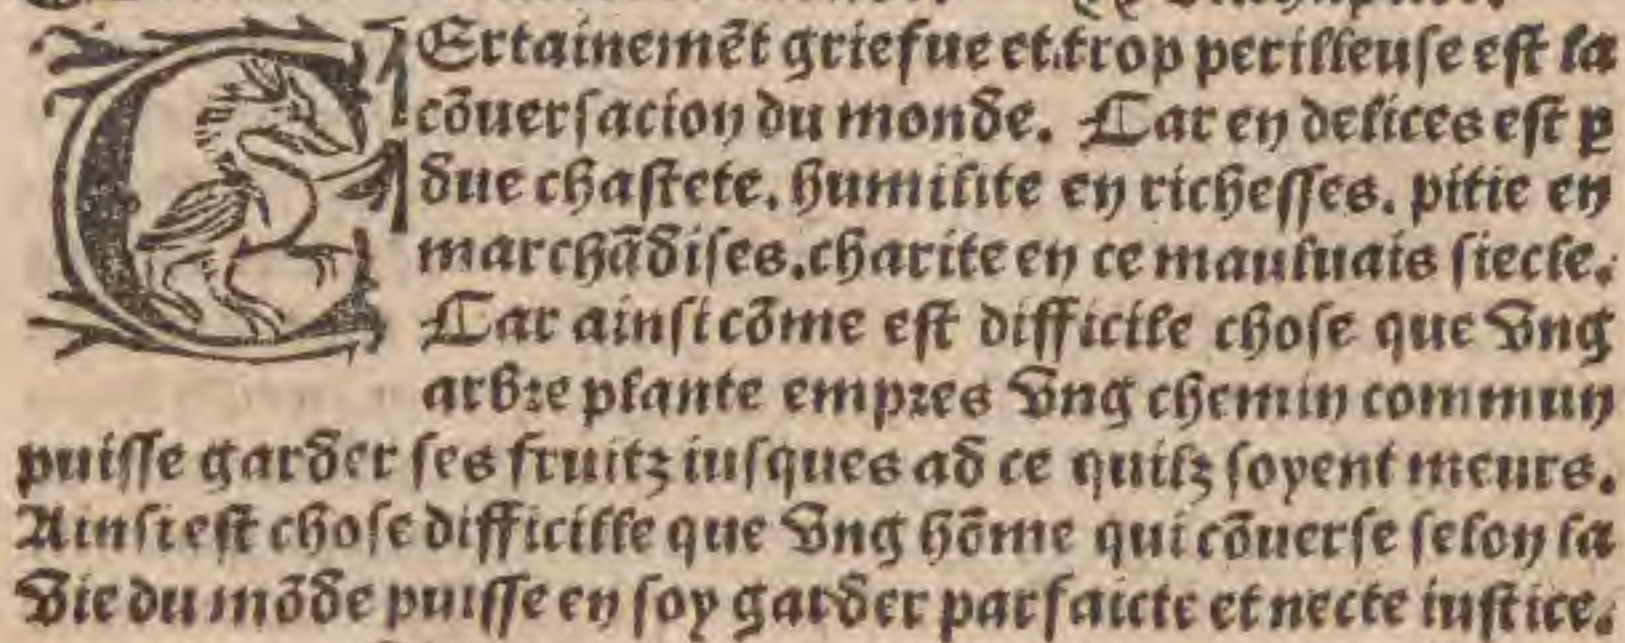 CErtainemẽt griefue et trop perilleuse est la
cõuersacion du monde. Car en delices est ꝑ
due chastete. humilite en richesses. pitie en
marchãdises. charite en ce mauluais siecle.
Car ainsi cõme est difficile chose que vng
arbre plante empres vng chemin commun
puisse garder ses fruitz iusques ad ce quilz soyent meurs.
Ainsi est chose difficille que vng hõme qui cõuerse selon la
vie du mõde puisse en soy garder parfaicte et necte iustice.